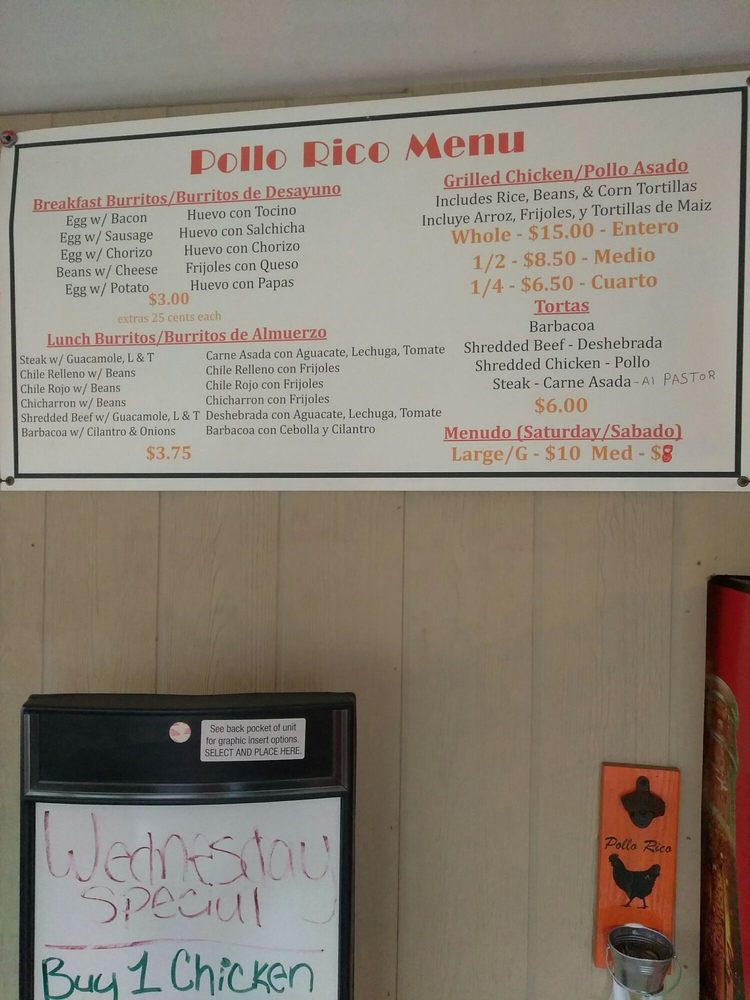 Pollo Rico Menu
Breakfast Burritos/Burritos de Desayuno
Egg w/ Bacon Huevo con Tocino
Egg w/ Sausage Huevo con Salchicha
Egg w/ Chorizo Huevo con Chorizo
Beans w/ Cheese Frijoles con Queso
Egg w/ Potato Huevo con Papas
$3.00
extras 25 cents each
Lunch Burritos/Burritos de Almuerzo
Steak w/ Guacamole, L & T Carne Asada con Aguacate, Lechuga, Tomate
Chile Relleno w/ Beans Chile Relleno con Frijoles
Chile Rojo w/ Beans Chile Rojo con Frijoles
Chicharron w/ Beans Chicharron con Frijoles
Shredded Beef w/ Guacamole, L & T Deshebrada con Aguacate, Lechuga, Tomate
Barbacoa w/ Cilantro & Onions Barbacoa con Cebolla y Cilantro
$3.75
Grilled Chicken/Pollo Asado
Includes Rice, Beans, & Corn Tortillas
Incluye Arroz, Frijoles, y Tortillas de Maiz
Whole - $15.00 - Entero
1/2 - $8.50 - Medio
1/4 - $6.50 - Cuarto
Tortas
Barbacoa
Shredded Beef - Deshebrada
Shredded Chicken - Pollo
Steak - Carne Asada - Al PASTOR
$6.00
Menudo (Saturday/Sabado)
Large/G - $10 Med - $8
See back pocket of unit
for graphic insert options.
SELECT AND PLACE HERE.
Wednesday
Special
Buy 1 Chicken
Pollo Rico